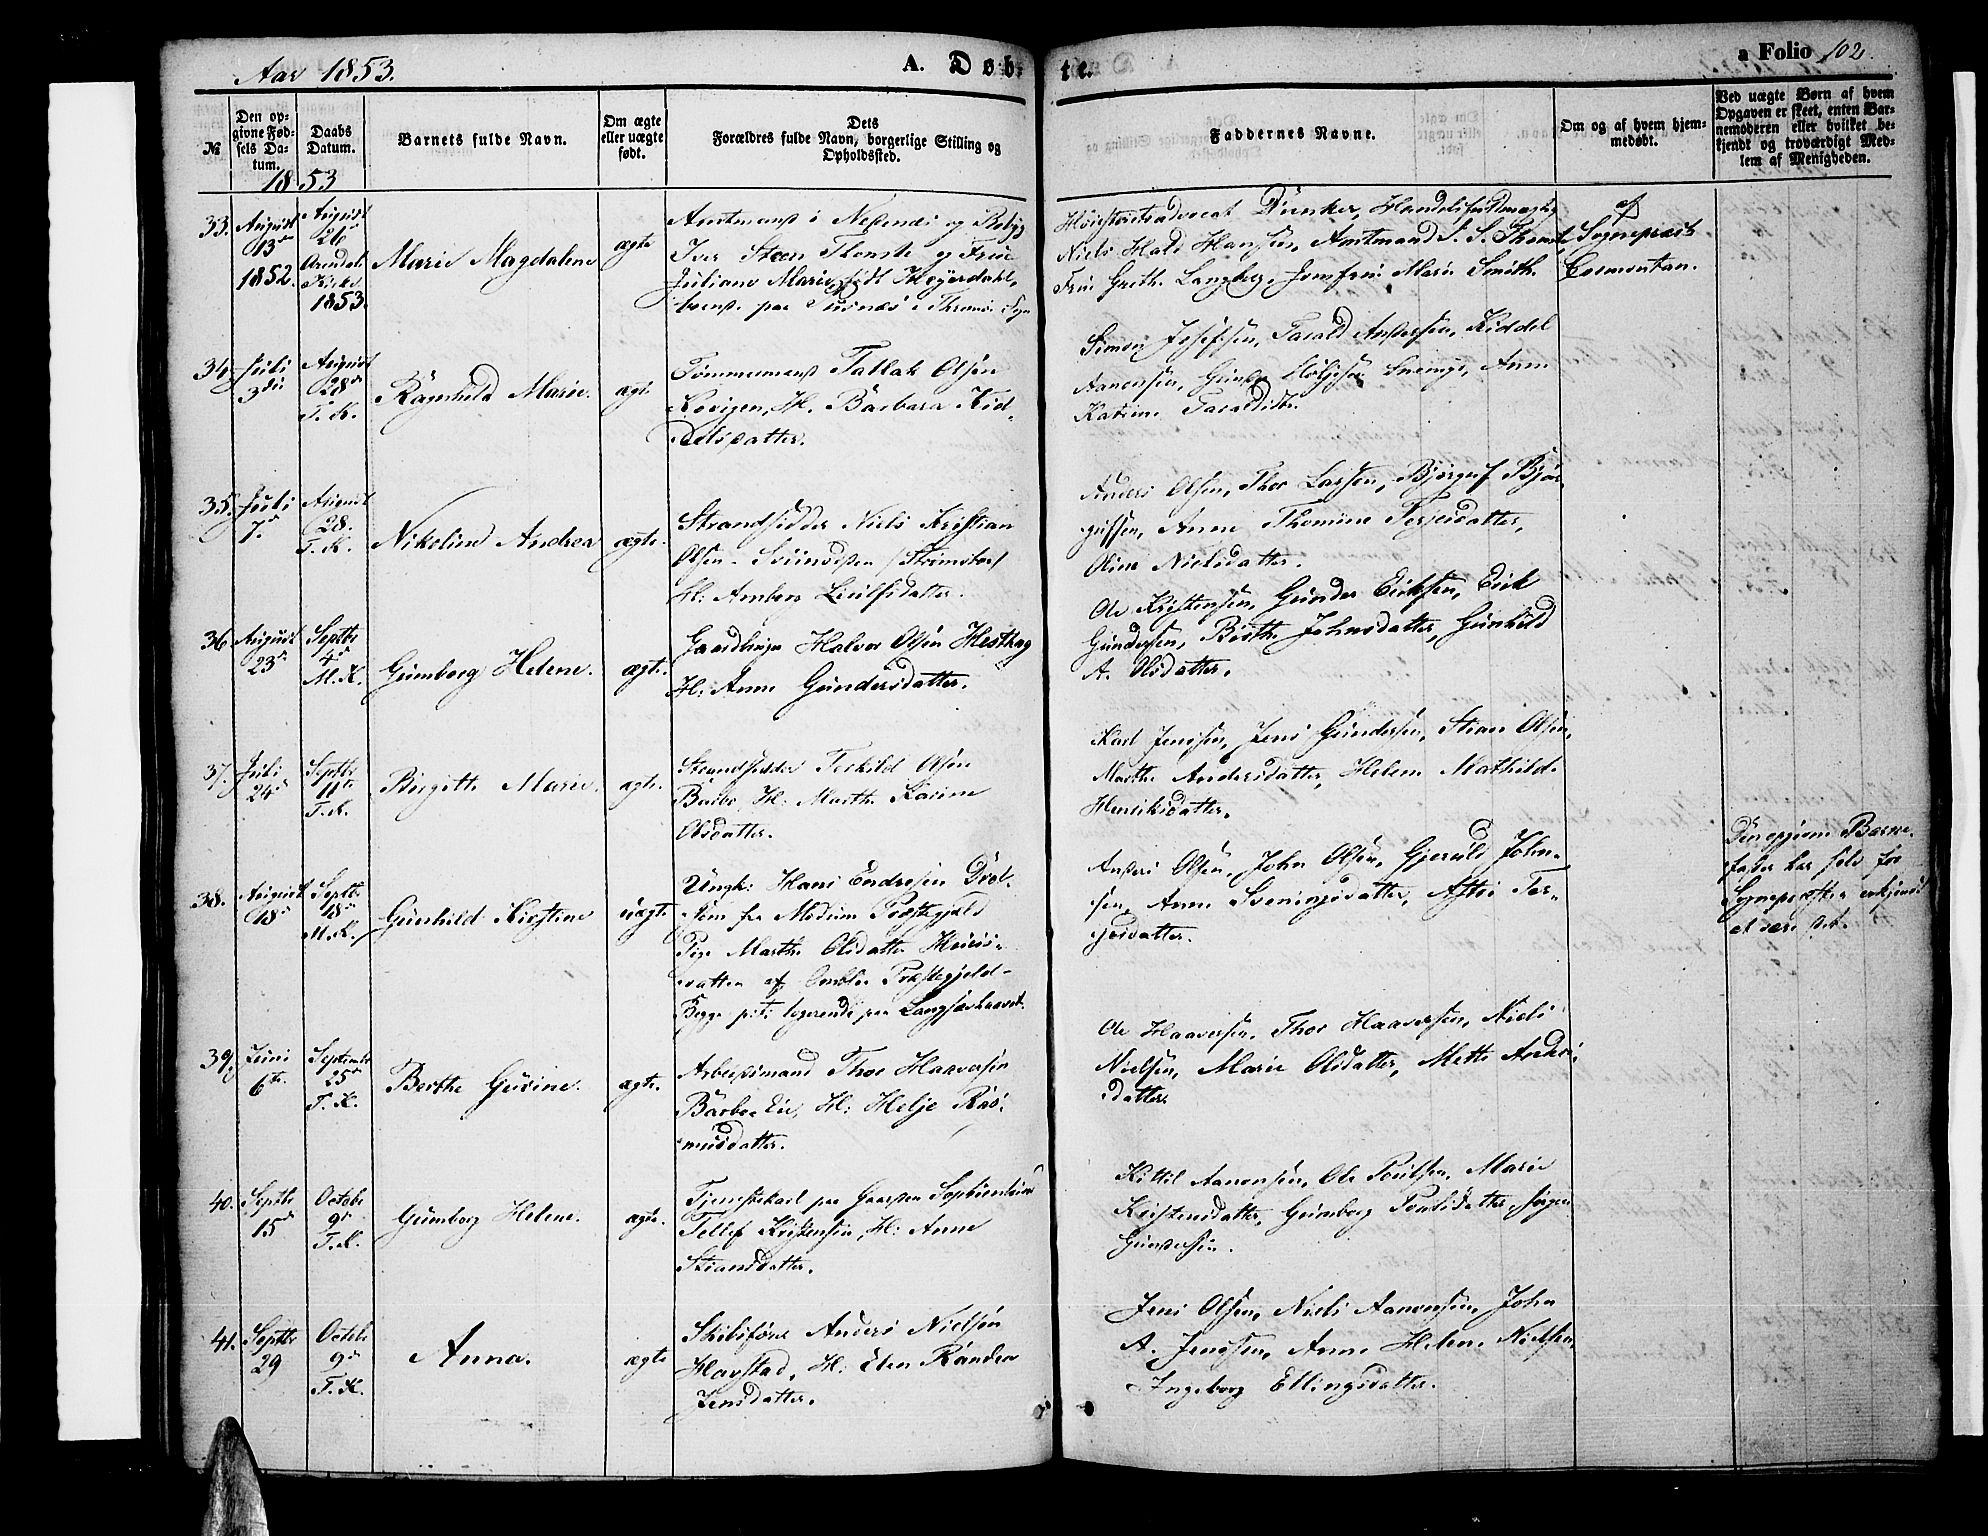 Aar 1853.
A. Døbte.
a Folio 102.
№
Den opgivne Fødsels Datum.
Daabs Datum.
Barnets fulde Navn.
Om ægte eller uægte født.
Dets Forældres fulde Navn, borgerlige Stilling og Opholdssted.
Faddernes Navne.
Om og af hvem hjemmedøbt.
Ved uægte Børn af hvem Opgaven er skeet, enten Barnemoderen eller hvilket bekjendt og troværdigt Medlem af Menigheden.
1853
33.
August
13de
1852.
August
26
Arendals
Kirke
1853.
Marie Magdalene
ægte
Amtmand i Nedenæs og
Iver Steen Thomle og Frue
Juliane Marie, født Heyerdahl,
boende paa i Tromø Sogn
Høiesteretsadvocat Dunker, Handelsfuldmægtig
Niels Hald Hansen, Amtmand I. S. Thomle
Frue Greth. Langberg, Jomfru Marie Smith.
af
Sognepræst
Cormontan.
34.
Juli
3die
August
28de
T. K.
Ragnhild Marie.
ægte
Tømmermand Tallak Olsen
H. Barbara Kid-
delsdatter.
Simon Josefsen, Tarald Andersen, Kiddel
Aanonsen, Anne
Katrine Taraldsdtr.
35.
Juli
7.
August
28.
T. K.
Nikoline Andrea
ægte.
Strandsidder Niels Kristian
Olsen
H:
Anders Olsen, Thor Larsen, Bjørguf Bjør-
gufsen, Anne Thomine Terjesdatter,
Oline Nielsdatter.
36
August
23de
Septbr
4de
M. K.
Gumborg Helene.
ægte.
Halvor Olsen Hesthag
H: Anne Gundersdatter.
Ole Kristensen, Gunder Eriksen, Erik
Gundersen, Birthe Johnsdatter, Gunhild
A. Olsdatter.
37.
Juli
24de
Septbr
11te
T. K.
Birgitte Marie.
ægte.
Strandsidder Terkild Olsen
Barbo H: Marthe Karine
Olsdatter.
Karl Jensen, Jens Gundersen, Stian Olsen,
Marthe Andersdatter, Helene Mathilde
Henriksdatter.
38.
August
18de
Septbr
18de
M. K.
Gunhild Kirstine
uægte
Ungk: Hans Endresen
fra Modum Præstegjeld
Pige Marthe Olsdatter
datter af Omblie Præstegjeld.
Begge pt. logerende paa Langsævhaavet.
Anders Olsen, John Olsen, Gjeruld John-
sen, Anne Sveningsdatter, Ter-
jesdatter.
Den opgivne Barne-
fader har selv for
Sognepræsten erkjendt
at være det.
39.
Juni
6te
Septembr
25de
T. K.
Berthe Gurine.
ægte.
Arbeidsmand Thor Haavorsen
Barbo H: Helje Ras-
musdatter.
Ole Haavorsen, Thor Haavorsen, Niels
Nielsen, Marie Olsdatter, Mette Anders-
datter
40.
Septbr
15de
Octobr
9de
T. K.
Gumborg Helene.
ægte.
Tjenestekarl paa Gaarden
Tellef Kristensen, H: Anne
Stiansdatter.
Kittil Aanonsen, Ole Poulsen, Marie
Kristensdatter, Gumborg Poulsdatter, Jørgen
Gundersen.
41.
Septbr
29
Octobr
9de
T. K.
Anna.
ægte
Skibsfører Anders Nielsen
Havstad, H: Elen Randea
Jensdatter.
Jens Olsen, Niels Aanonsen, John
A. Jensen, Anne Helene Nielsen,
Ingeborg Ellingsdatter.